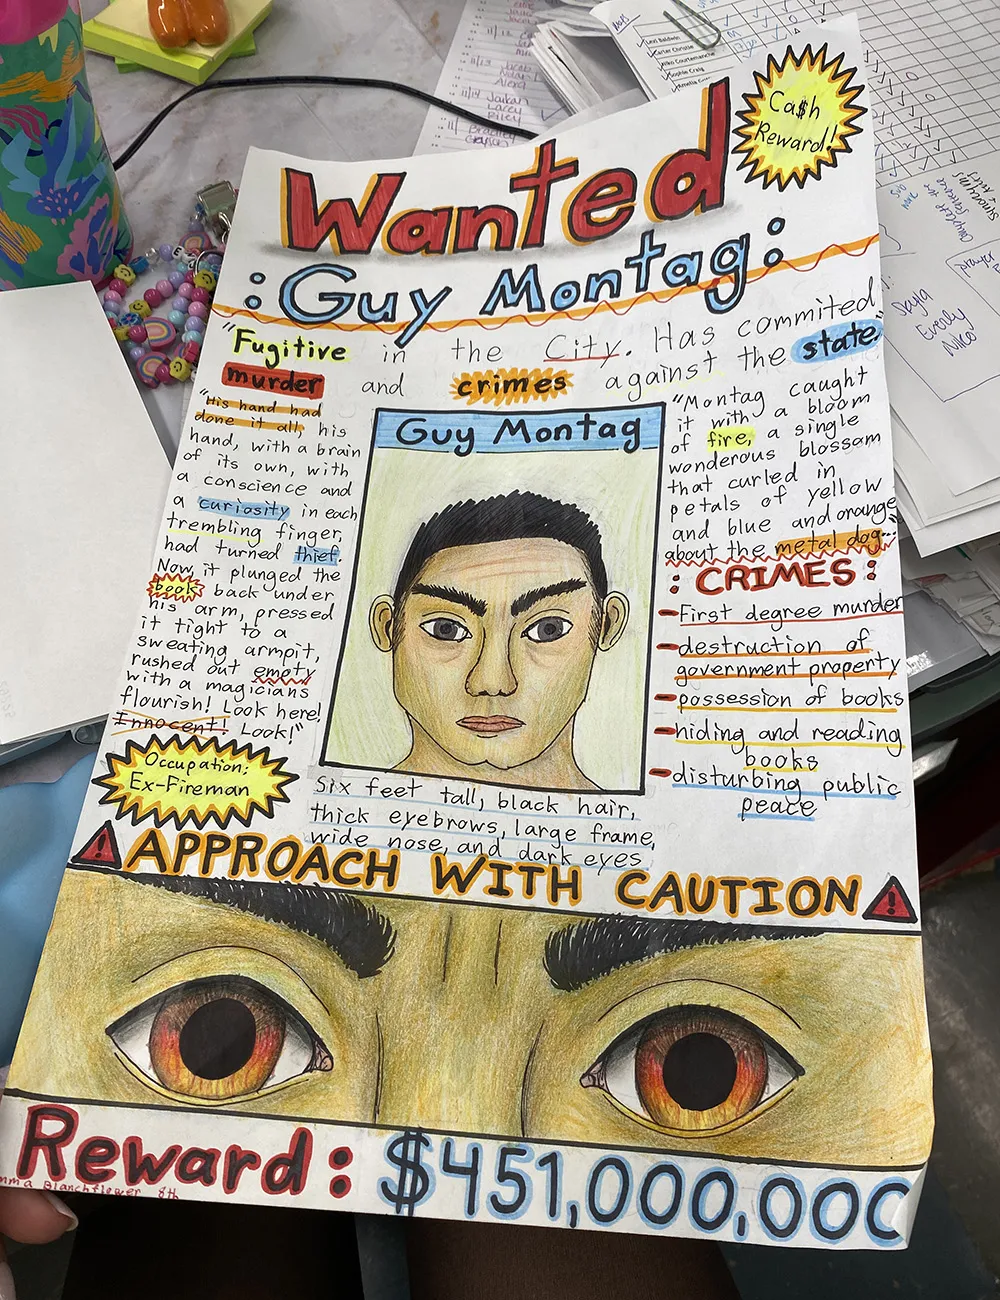 Ca$h
Reward!
Wanted
:Guy Montag:
"Fugitive in the City. Has commited
murder and crimes against the state."
"His hand had
done it all, his
hand, with a brain
of its own, with
a conscience and
a curiosity in each
trembling finger,
had turned thief.
Now, it plunged the
book back under
his arm, pressed
it tight to a
sweating armpit,
rushed out empty
with a magicians
flourish! Look here!
Innocent! Look!"
Guy Montag
"Montag caught
it with a bloom
of fire, a single
wonderous blossom
that curled in
petals of yellow
and blue and orange
about the metal dog..."
: CRIMES :
- First degree murder
- destruction of
government property
- possession of books
- hiding and reading
books
- disturbing public
peace
Occupation:
Ex-Fireman
Six feet tall, black hair,
thick eyebrows, large frame,
wide nose, and dark eyes
! APPROACH WITH CAUTION !
Reward: $451,000,000
mma Blanchflower 8th
Levi Baldwin
Carter Christie
Niko Courtemanche
Sophie Craig
Skyla
Everly
Nico
prayer